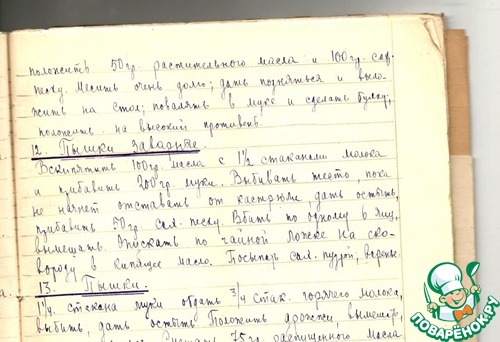 положить 50 гр. растительного масла и 100 гр. сах.
песку. Месить очень долго; дать подняться и выло-
жить на стол; повалять в муке и сделать булку;
положить на высокий противень
12. Пышки заварные
Вскипятить 100 гр. масла с 1 1/2 стаканами молока
и прибавить 200 гр. муки. Выбивать тесто, пока
не начнет отставать от кастрюли, дать остыть,
прибавить 50 гр. сах. песку. Вбить по одному 6 яиц,
вымешать. Опускать по чайной ложке на ско-
вороду в кипящее масло. Посыпать сах. пудрой, варенье.
13. Пышки
1 1/4 стакана муки обдать 3/4 стак. горячего молока,
выбить, дать остыть. Положить дрожжи, вымешать,
75 гр. распущенного масла
ПОВАРЁНОК.РУ